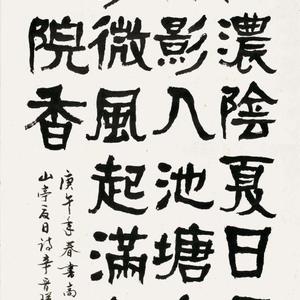 濃陰夏日
影入池塘
微風起滿
院香
庚午年春書高
山亭夏日詩